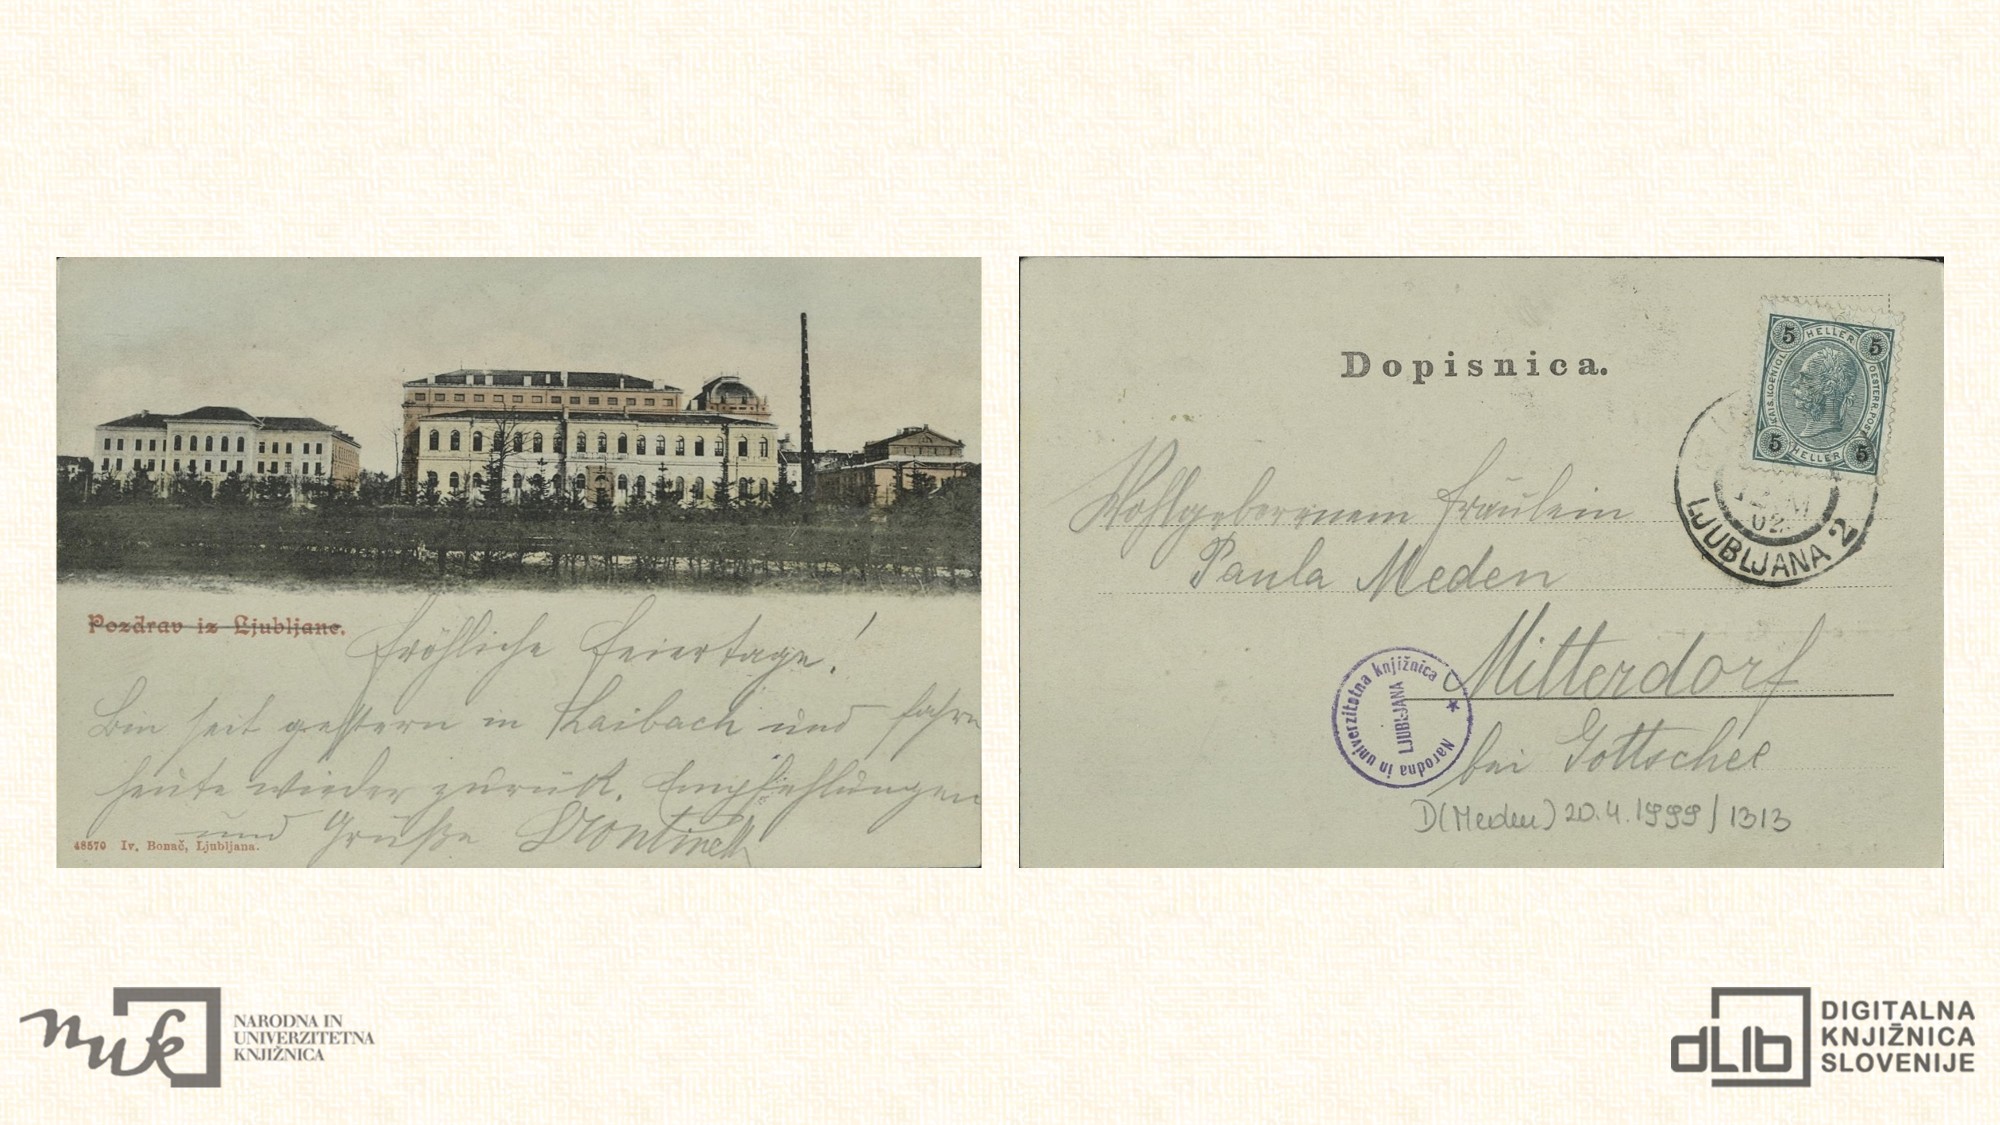 Pozdrav iz Ljubljane.
Fröhliche Feiertage!
Bin seit gestern in Laibach und fahre
heute wieder zurück. Empfehlungen
und Grüße
48570 Iv. Bonač, Ljubljana.
Dopisnica.
5 HELLER 5
KAIS. KOENIGL. OESTERR. POST
5 HELLER 5
02
LJUBLJANA 2
Wohlgeborenem Fräulein
Paula Meden
Mitterdorf
bei Gottschee
Narodna in univerzitetna knjižnica
LJUBLJANA
D(Meden) 20.4.1999/1313
nuk
NARODNA IN
UNIVERZITETNA
KNJIŽNICA
dLib
DIGITALNA
KNJIŽNICA
SLOVENIJE